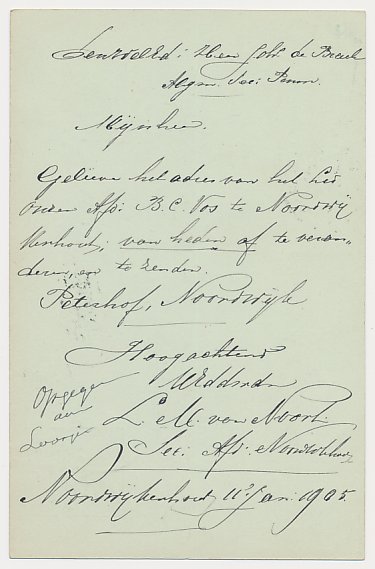 Heer Joh. de Breuk
Algm. Sec: Penm.
Mijnheer.
Gelieve het adres van het Lid
onzer Afd: B.C. Vos te Noordwij
kerhout, van heden af te veran-
deren, en te zenden.
Peterhof, Noordwijk
Hoogachtend
UEddndr
L. M. van Noort
Sec: Afd: Noordwkhout
Opgegev
aan
Noordwijkerhout 11 Jan: 1905.